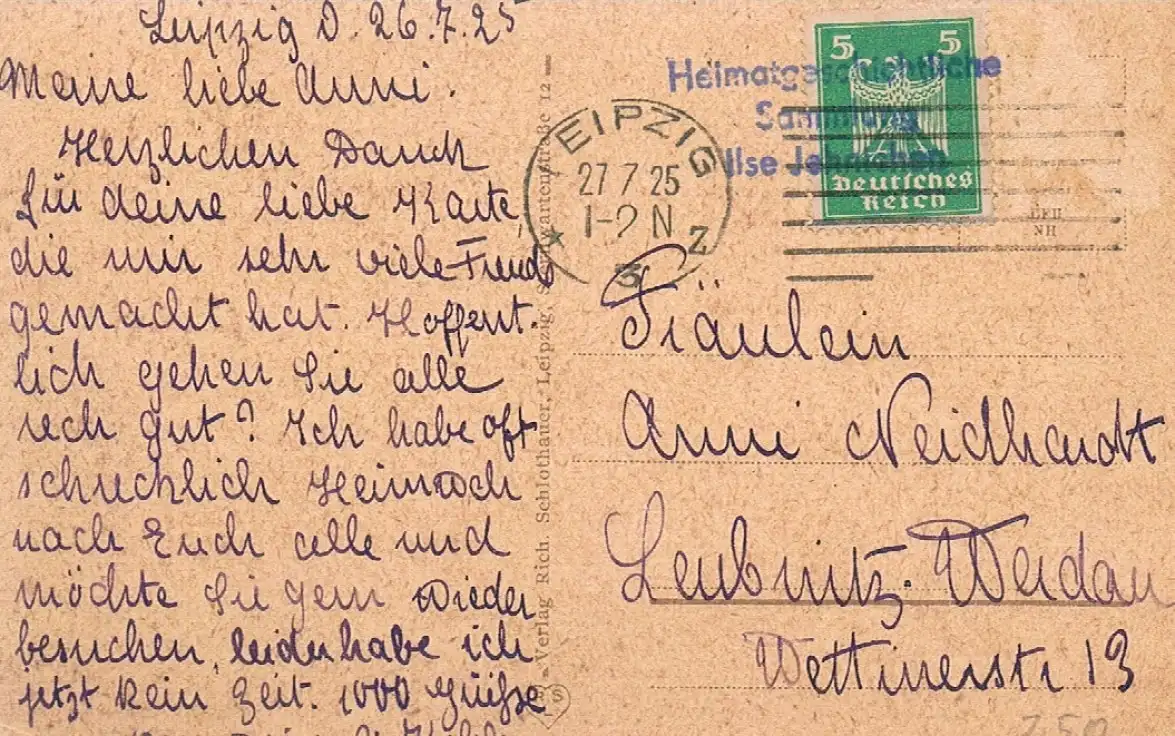 Leipzig d. 26.7.25
Meine liebe Anni.
Herzlichen Danck
für deine liebe Karte
die mir sehr viele Freude
gemacht hat. Hoffent-
lich gehen Sie alle
rech gut? Ich habe oft
schrecklich Heimwoch
nach Euch alle und
möchte Sie gern wieder
besuchen, leider habe ich
jetzt kein Zeit. 1000 Grüsse
Verlag Rich. Schlothauer, Leipzig, 12
Heimatgeschichtliche
Sammlung
Ilse
LEIPZIG
27 7 25
1-2 N
3 Z
5 5
Deutsches
Reich
Fräulein
Anni Neidhardt
Leubnitz-Werdau
Wettinerstr 13